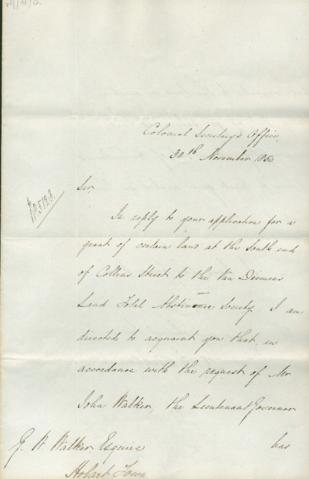 Colonial Secretary's Office,
30th November
Sir,
In reply to your application for a
grant of certain land at the South end
of Collins Street to the Van Diemens
Land Total Abstinence Society I am
directed to acquaint you that, in
accordance with the request of Mr
John Walker, the Lieutenant Governor
has
G. W. Walker Esquire
Hobart Town